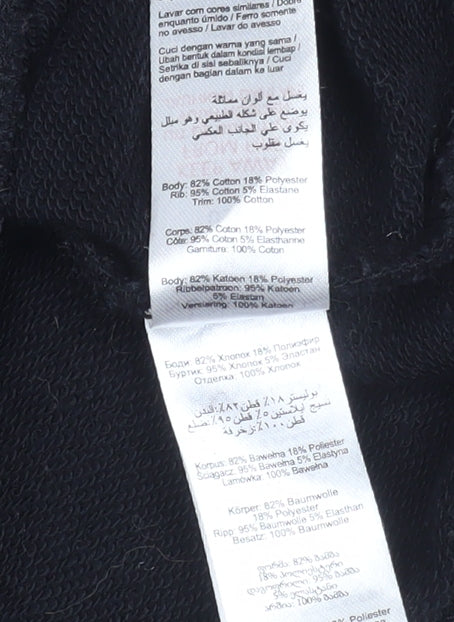 Lavar com cores similares / Dobre
enquanto úmido / Ferro somente
no avesso / Lavar do avesso
Cuci dengan warna yang sama /
Ubah bentuk dalam kondisi lembap /
Setrika di sisi sebaliknya / Cuci
dengan bagian dalam ke luar
يغسل مع ألوان مماثلة
يوضع على شكله الطبيعي وهو مبلل
يكوى على الجانب العكسي
يغسل مقلوب
Body: 82% Cotton 18% Polyester
Rib: 95% Cotton 5% Elastane
Trim: 100% Cotton
Corps: 82% Coton 18% Polyester
Côte: 95% Coton 5% Elasthanne
Garniture: 100% Coton
Body: 82% Katoen 18% Polyester
Ribbelpatroon: 95% Katoen
5% Elastan
Versiering: 100% Katoen
Боди: 82% Хлопок 18% Полиэфир
Буртик: 95% Хлопок 5% Эластан
Отделка: 100% Хлопок
بوليستر ١٨٪ قطن ٨٢٪:البدن
نسيج إيلاستين ٥٪ قطن ٩٥٪:ضلع
قطن ١٠٠٪:زخرفة
Korpus: 82% Bawełna 18% Poliester
Ściągacz: 95% Bawełna 5% Elastyna
Lamówka: 100% Bawełna
Körper: 82% Baumwolle
18% Polyester
Ripp: 95% Baumwolle 5% Elasthan
Besatz: 100% Baumwolle
ფორმა: 82% ბამბა
18% პოლიესტერი
95% ბამბა
5% ელასტანი
არშია: 100% ბამბა
Poliester